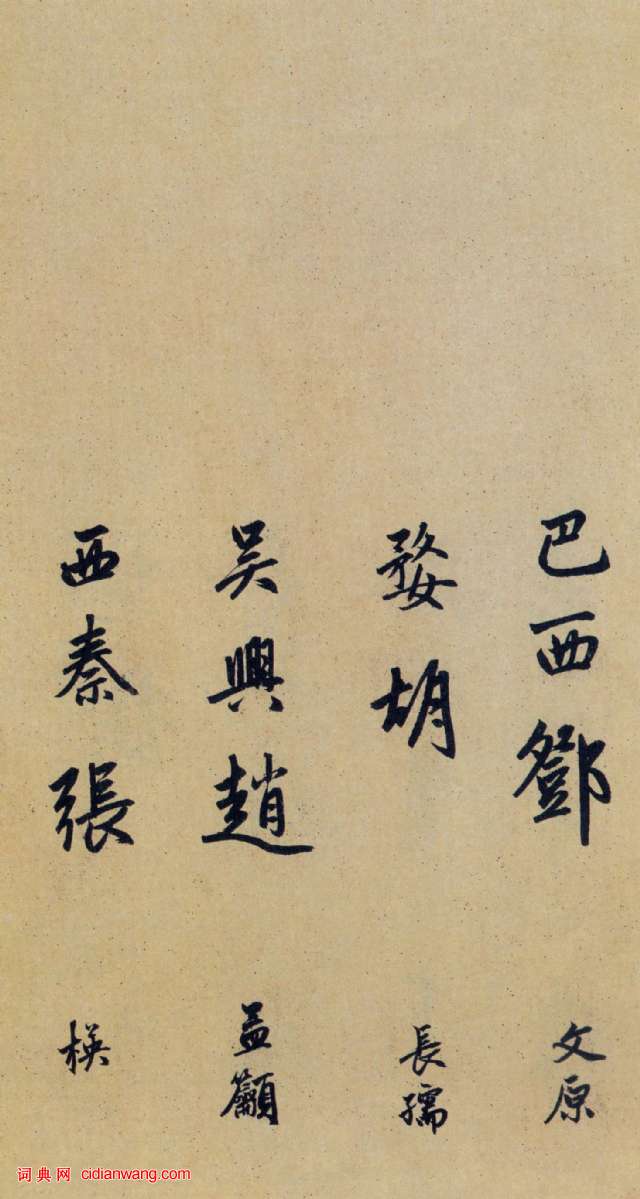 巴西鄧文原
婺胡長孺
吴興趙孟籲
西秦張楧
词典网 cidianwang.com